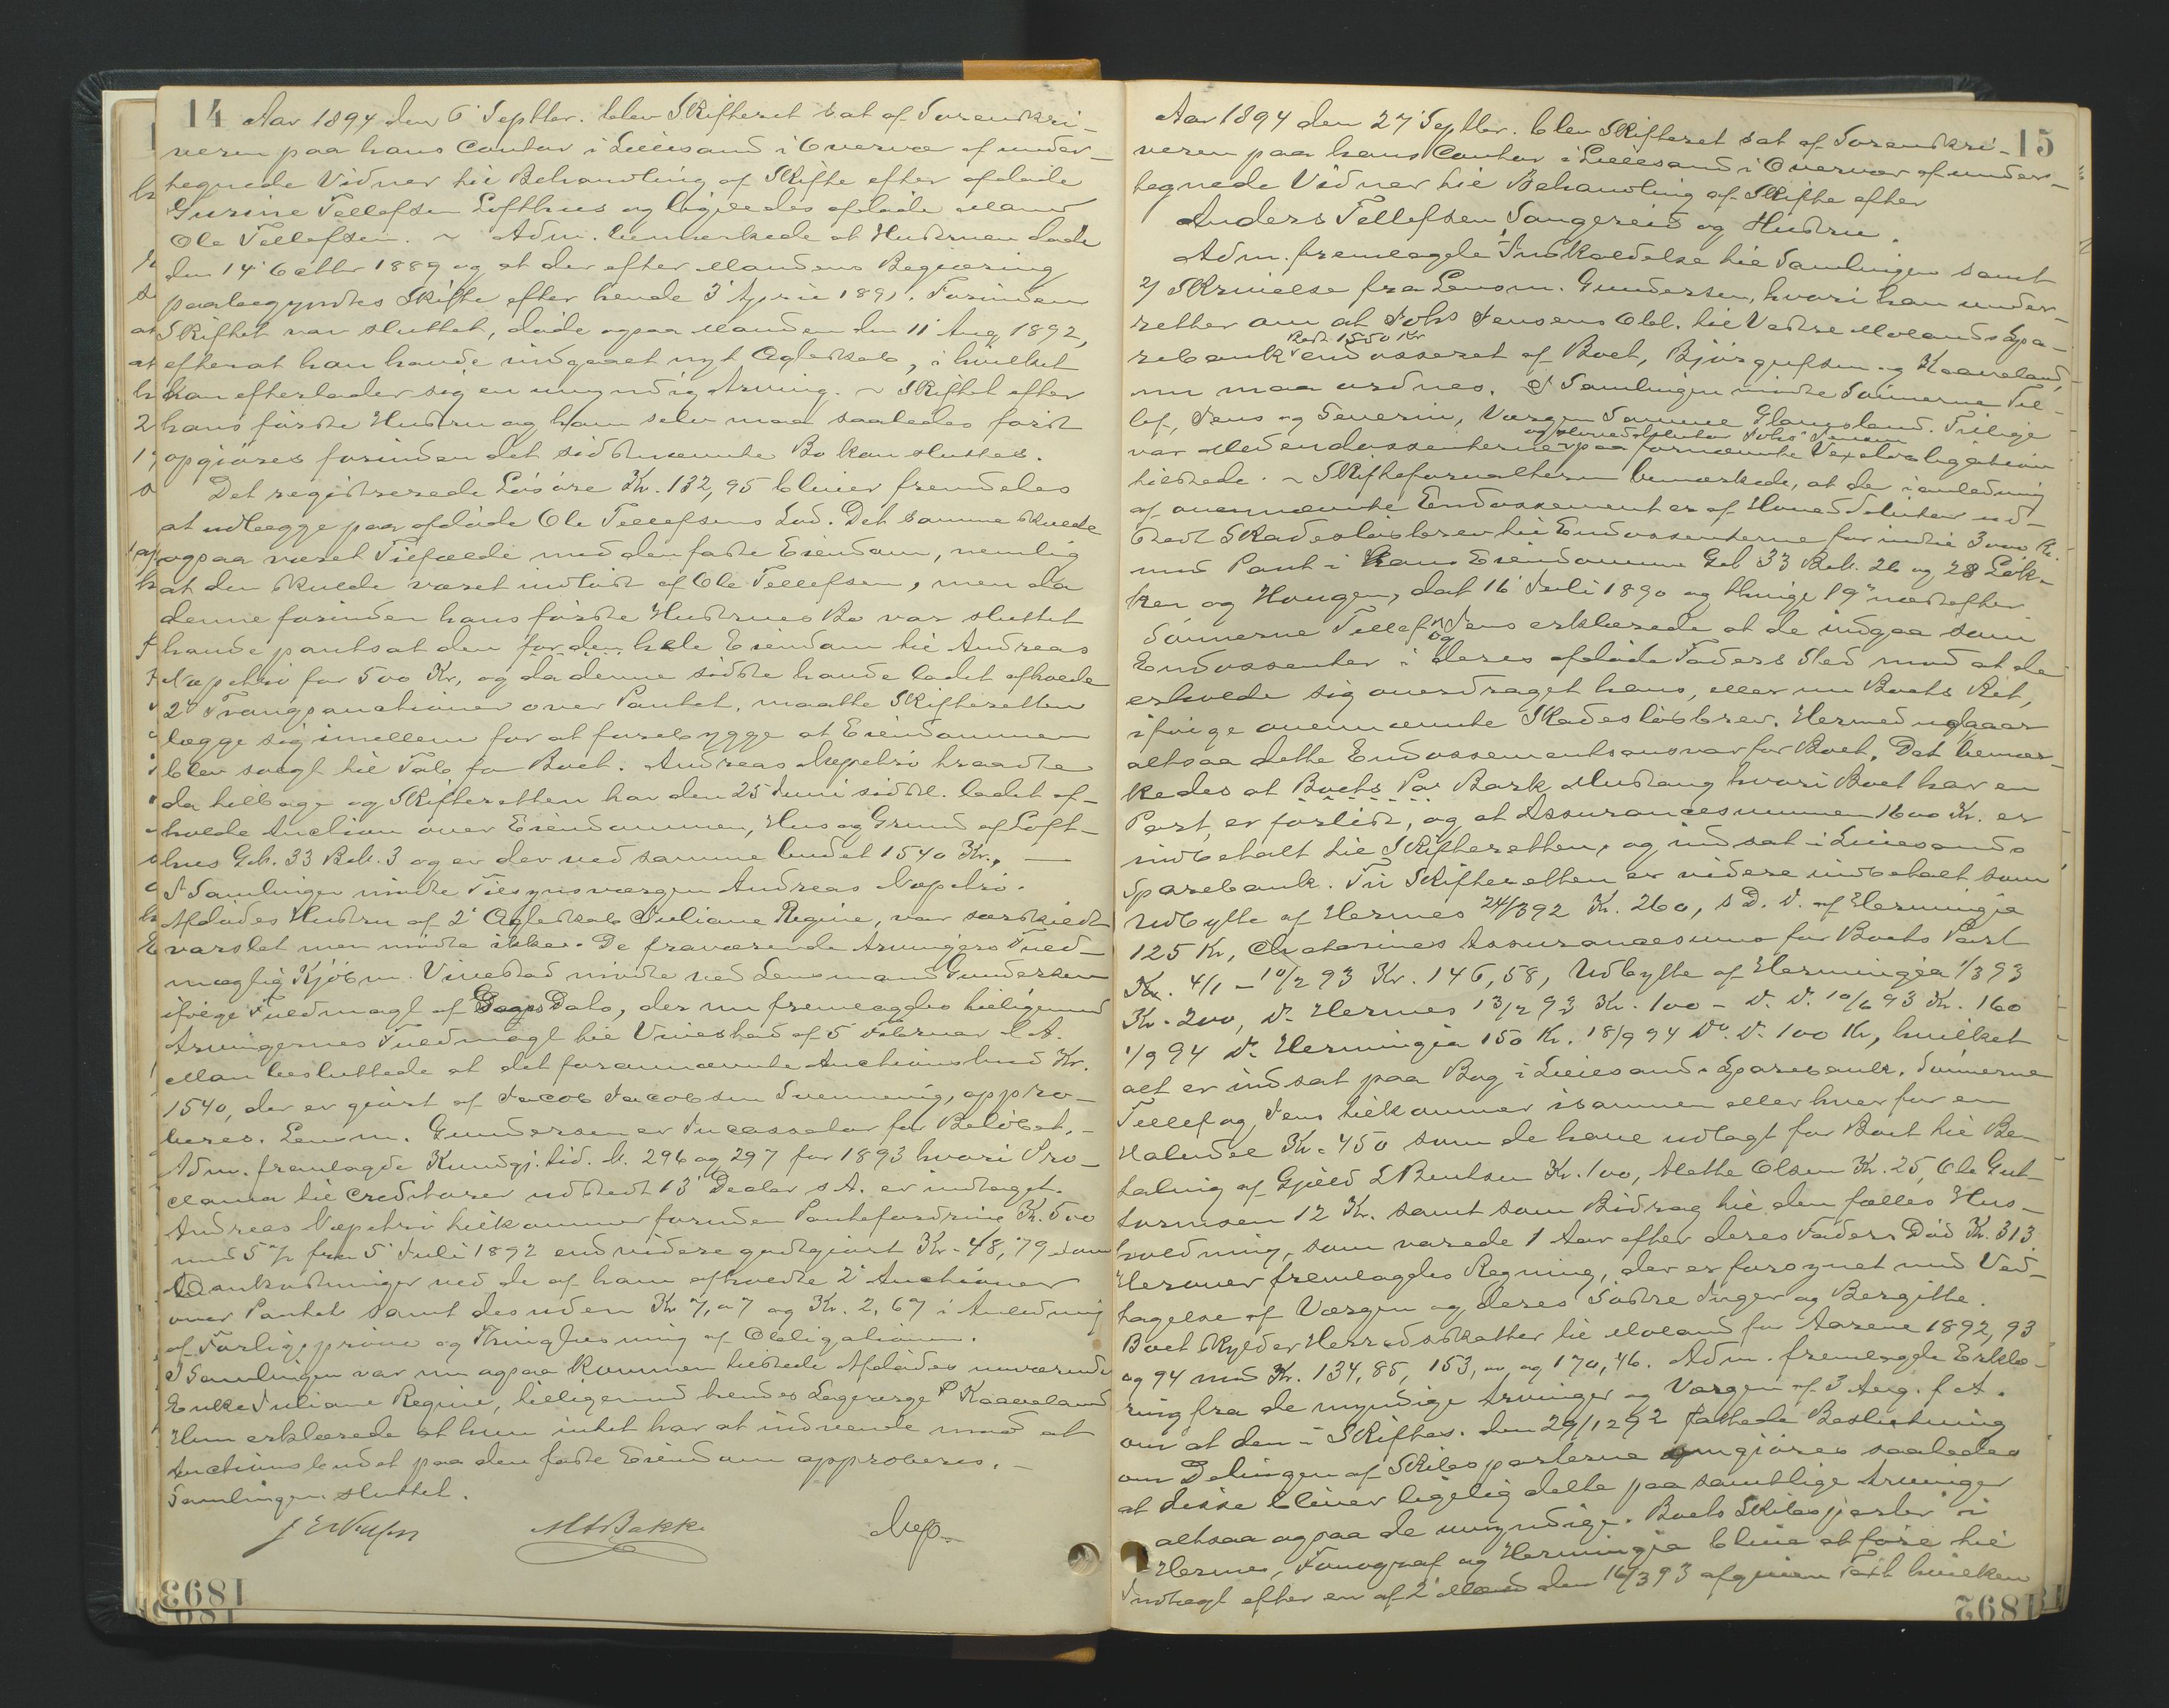 14
Aar 1894 den 6' Septbr. blev Skifteret sat af Sorenskri-
veren paa hans Contor i Lillesand i Overvær af under-
tegnede Vidner til Behandling af Skifte efter afdøde
Gurine Tellefsen Lofthus og ligeledes afdøde Mand
Ole Tellefsen. ~ Adm. bemærkede at Hustruen døde
den 14' Octbr 1889 og at der efter Mandens Begjæring
paabegyndtes Skifte efter hende 3' April 1891. Forinden
Skiftet var sluttet, døde ogsaa Manden den 11' Aug 1892,
efterat han havde indgaaet nyt Ægteskab, i hvilket
han efterlader sig en umyndig Arving. ~ Skiftet efter
hans første Hustru og ham selv maa saaledes først
opgjøres forinden det sidstnævnte Bo kan sluttes.
Det registrerede Løsøre Kr. 132,95 bliver fremdeles
at udlægge paa afdøde Ole Tellefsens Lod. Det samme skulde
ogsaa været Tilfælde med den faste Eiendom, nemlig
at den skulde været indløst af Ole Tellefsen, men da
denne forinden hans første Hustrues Bo var sluttet
havde pantsat den for den hele Eiendom til Andreas
Vepelrø for 500 Kr, og da denne sidste havde ladet afholde
2' Tvangsauctioner over Pantet, maatte Skifteretten
lægge sig imellem for at forebygge at Eiendommen
blev solgt til Tab for Boet. Andreas Vepelrø traadte
da tilbage og Skifteretten har den 25 Juni sidstl. ladet af-
holde Auction over Eiendommen, Hus og Grund af Loft-
hus Gb. 33 Bb. 3 og er der ved samme budet 1540 Kr.
I Samlingen mødte Tilsynsværgen Andreas Vepelrø.
Afdødes Hustru af 2' Ægteskab Juliane Regine, var særskildt
varslet men mødte ikke. De fraværende Arvingers Fuld-
mægtig Kjøbm. Vinestad mødte ved Lensmand Gundersen
ifølge Fuldmagt af Dags Dato, der nu fremlagdes tilligemed
Arvingernes Fuldmagt til Vinestad af 5 Februar d. A.
Man besluttede at det forannævnte Auctionsbud Kr.
1540, der er gjort af Jacob Jacobsen Svennevig, appro-
beres. Lensm. Gundersen er Incassator for Beløbet. -
Adm. fremlagde Kundgj. tid. N. 296 og 297 for 1893 hvori Pro-
clama til Creditorer udstedt 13' Decbr s. A. er indtaget.
Andreas Vepelrø tilkommer foruden Pantefordring Kr. 500
med 5 % fra 5' Juli 1892 endvidere godtgjort Kr. 48,79 som
Omkostninger ved de af ham afholdte 2' Auctioner
over Pantet samt desuden Kr 7,07 og Kr. 2,67 i Anledning
af Forligsprøve og Thinglæsning af Obligationen.
I Samlingen var nu ogsaa kommen tilstede Afdødes nuværende
Enke Juliane Regine, tilligemed hendes Lagværge P Kaaveland
Hun erklærede at hun intet har at indvende mod at
Auctionsbudet paa den faste Eiendom approberes. -
Samlingen sluttet.
M A Bakke
15
Aar 1894 den 27' Septbr. blev Skifteret sat af Sorenskri-
veren paa hans Contor i Lillesand i Overvær af under-
tegnede Vidner til Behandling af Skifte efter
Anders Tellefsen Sangereid og Hustru.
Adm. fremlagde Indkaldelse til Samlingen samt
2) Skrivelse fra Lensm. Gundersen, hvori han under-
retter om at Johs Jensens Obl. til Vestre Molands Spa-
rebank Rest 1550 Kr endosseret af Boet, Bjørgufsen og Kaaveland,
nu maa ordnes. I Samlingen mødte Sønnerne Tel-
lef, Jens og Severin, Værgen Glangsland. Tillige
var Medendossenterne og Hoveddebitor Johs Jensen paa fornævnte Vexelobligation
tilstede. ~ Skifteforvalteren bemærkede, at der i anledning
af ovennævnte Endossement er af Hoveddebitor ud-
stedt Skadesløsbrev til Endossenterne for indtil 3000 Kr.
med Pant i hans Eiendomme Gb 33 Bb. 26 og 28 Løk-
ken og Hougen, dat 16' Juli 1890 og thingl 19' næstefter
Sønnerne Tellef og Jens erklærede at de indgaa som
Endossenter i deres afdøde Faders Sted mod at de
erholde sig overdraget hans, eller nu Boets Ret,
ifølge ovennævnte Skadesløsbrev. Hermed udgaar
altsaa dette Endossementsansvar for Boet. Det bemær-
kedes at Boets Par Bark Mustang hvori Boet har en
Part, er forlist, og at Assurancesummen 1600 Kr. er
indbetalt til Skifteretten, og indsat i Lillesands
Sparebank. Til Skifteretten er videre indbetalt som
Udbytte af Hermes 24/3 92 Kr. 260, s D. D. af Hermingia
125 Kr, Chatarines Assurancesum for Boets Part
Kr. 4/1 - 10/2 93 Kr. 146,58, Udbytte af Hermingia 1/3 93
Kr. 200, D. Hermes 13/2 93 Kr. 100 - D. D. 10/6 93 Kr. 160
1/9 94 D. Hermingia 150 Kr. 18/9 94 Do. D. 100 Kr, hvilket
alt er indsat paa Bog i Lillesands Sparebank. Sønnerne
Tellef og Jens tilkommer isammen eller hver for en
Halvdel Kr. 450 som de have udlagt for Boet til Be-
taling af Gjæld L Bentsen Kr. 100, Mette Olsen Kr. 25, Ole Gut-
tormsen 12 Kr. samt som Bidrag til den fælles Hus-
holdning, som varede 1 Aar efter deres Faders Død Kr. 313.
Herover fremlagdes Regning, der er forsynet med Ved-
tagelse af Værgen og deres Søstre Inger og Bergitte.
Boet skylder Herredsskatter til Moland for Aarene 1892, 93
og 94 med Kr. 134,85, 153,00 og 170,46. Adm. fremlagde Erklæ-
ring fra de myndige Arvinger og Værgen af 3 Aug. f A.
om at den i Skiftes. den 29/12 92 fattede Beslutning
om Delingen af Skibsparterne omgjøres saaledes
at disse bliver ligelig delte paa samtlige Arvinger
altsaa ogsaa de umyndige. Boets Skibsparter i
Hermes, Fonograf og Hermingia blive at føre til
Indtægt efter en af 2' Mænd den 16/3 93 afgiven Taxt hvilken
1893
1892